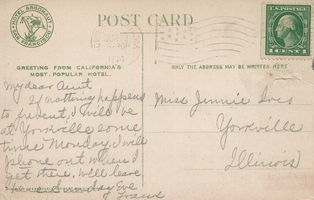 HOTEL ARGONAUT
SAN FRANCISCO
POST CARD
U.S. POSTAGE
1 CENT 1
GREETING FROM CALIFORNIA'S
MOST POPULAR HOTEL.
ONLY THE ADDRESS MAY BE WRITTEN HERE
My dear Aunt
If nothing happens
to prevent, I will be
at Yorkville some
time Monday. I will
phone out when I
get there. Will leave
here Sunday eve
Miss Jennie Ives
Yorkville
Illinois